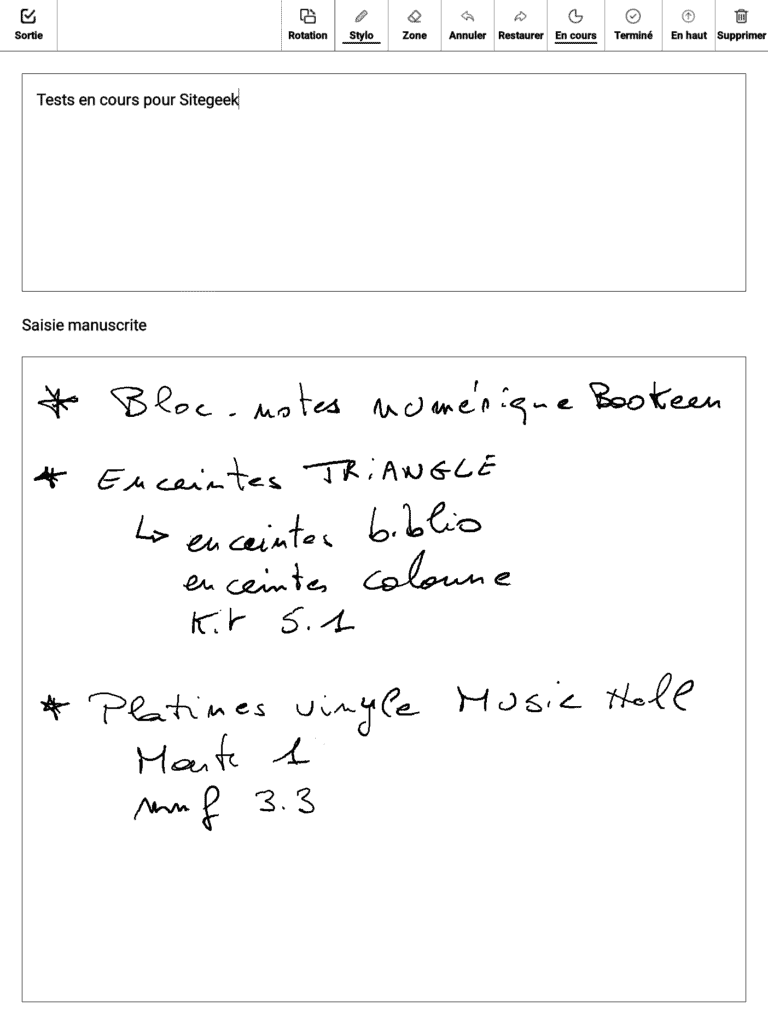 Sortie Rotation Stylo Zone Annuler Restaurer En cours Terminé En haut Supprimer
Tests en cours pour Sitegeek
Saisie manuscrite
* Bloc-notes numérique Bookeen
* Enceintes TRiANGLE
↳ enceintes biblio
enceintes colonne
Kit 5.1
* Platines vinyle Music Hall
Mark 1
mmf 3.3